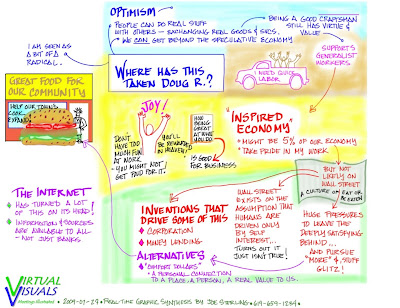 OPTIMISM
PEOPLE CAN DO REAL STUFF
WITH OTHERS - EXCHANGING REAL GOODS & SRVCS.
WE CAN GET BEYOND THE SPECULATIVE ECONOMY
BEING A GOOD CRAFTSMAN
STILL HAS VIRTUE &
VALUE
SUPPORTS
GENERALIST
WORKERS
I AM SEEN AS
A BIT OF A
RADICAL..
WHERE HAS THIS
TAKEN DOUG R..?
I NEED QUICK
LABOR
GREAT FOOD FOR
OUR COMMUNITY
HELP OUR TOWN'S
COOK
EXPAND
JOY!
DON'T
HAVE TOO
MUCH FUN
AT WORK
YOU MIGHT NOT
GET PAID FOR IT.
YOU'LL
BE REWARDED
IN HEAVEN!
HOW
BEING
GREAT AT
WHAT YOU
DO
IS GOOD
FOR BUSINESS
"INSPIRED
ECONOMY"
MIGHT BE 5% OF OUR ECONOMY
TAKE PRIDE IN MY WORK
BUT NOT
LIKELY ON
WALL STREET
A CULTURE OF EAT OR
BE EATEN
HUGE PRESSURES
TO LEAVE THE
DEEPLY SATISFYING
BEHIND...
AND PURSUE
MORE $, STUFF
GLITZ!
WALL STREET
EXISTS ON THE
ASSUMPTION THAT
HUMANS ARE
DRIVEN ONLY
BY SELF
INTEREST...
TURNS OUT IT
JUST ISN'T TRUE!
THE INTERNET
HAS TURNED A LOT
OF THIS ON ITS HEAD!
INFORMATION & SOURCES
ARE AVAILABLE TO ALL
- NOT JUST BANKS
INVENTIONS THAT
DRIVE SOME OF THIS
CORPORATION
MONEY LENDING
ALTERNATIVES
"COMFORT DOLLARS"
A PERSONAL CONNECTION
TO A PLACE, A PERSON, A REAL VALUE TO US.
VIRTUAL
VISUALS
Meetings Illustrated
2009-07-29 • REAL TIME GRAPHIC SYNTHESIS BY JOE STERLING • 619-659-1234